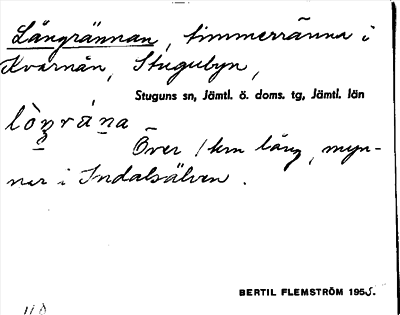 Långrännan, timmerränna i
Kvarnån, Stugubyn,
Stuguns sn, Jämtl. ö. doms. tg, Jämtl. län
Över 1 km lång, myn-
nar i Indalsälven.
BERTIL FLEMSTRÖM 1955.